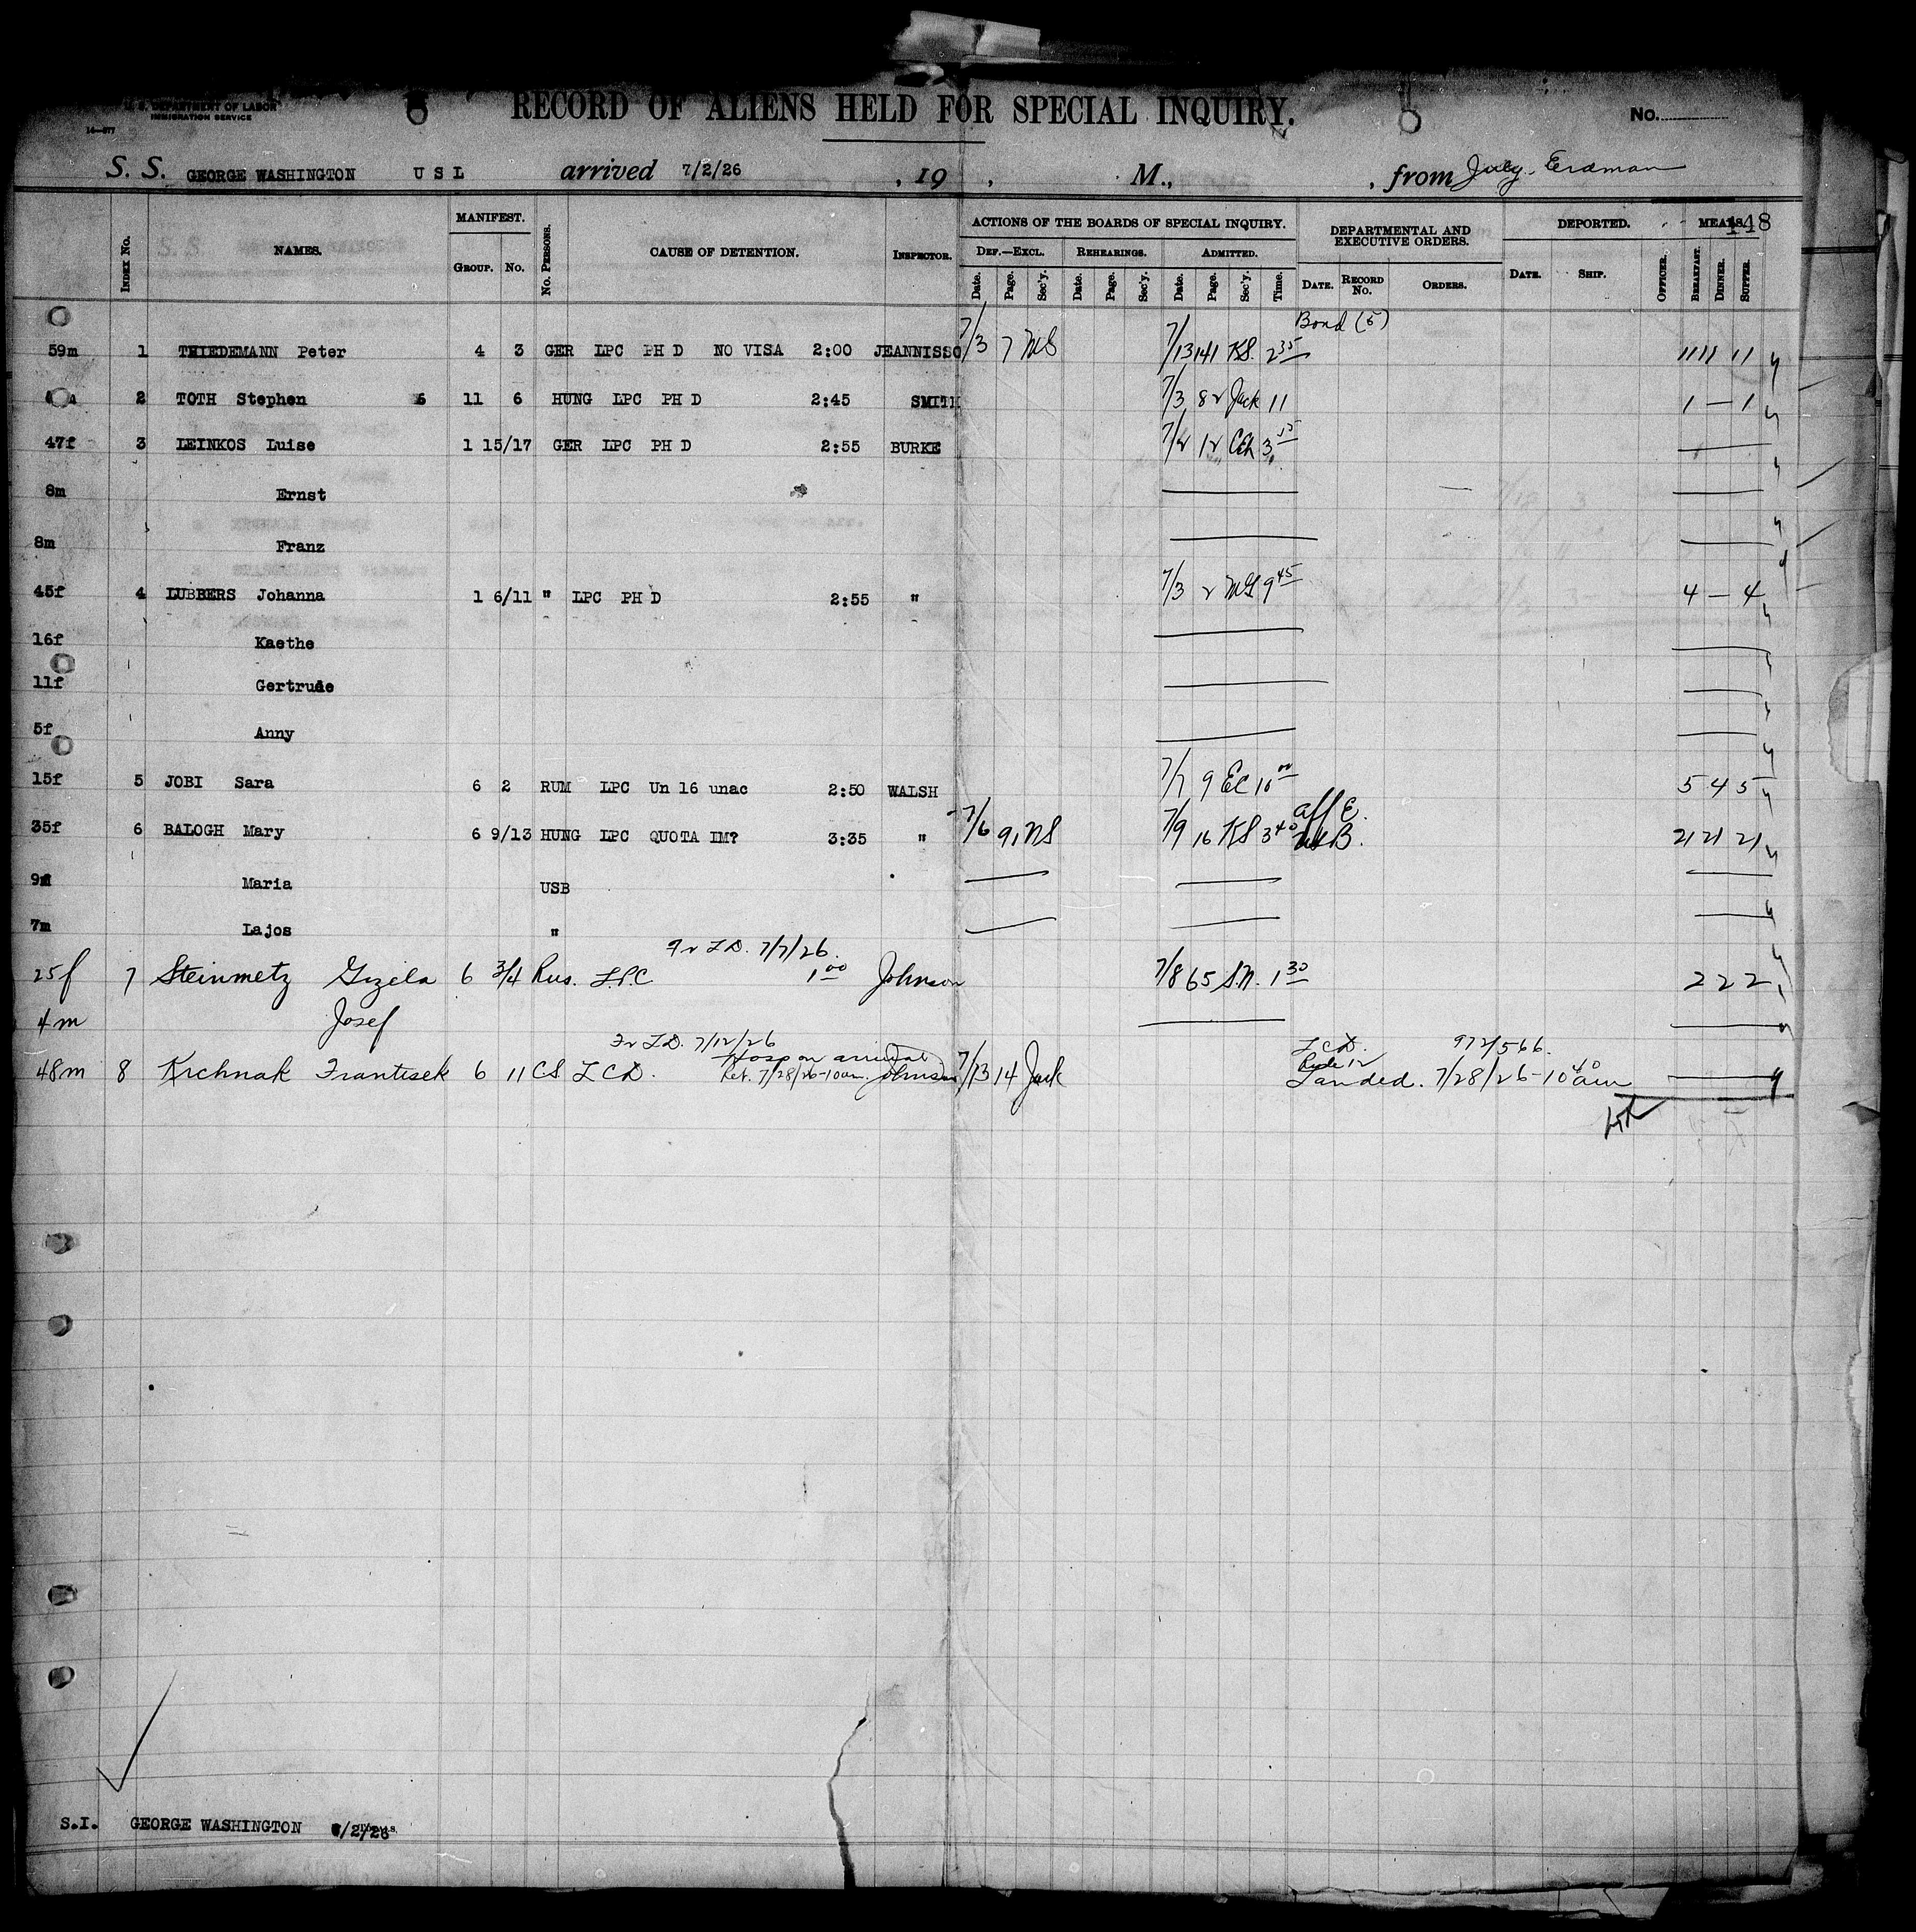 U. S. DEPARTMENT OF LABOR
IMMIGRATION SERVICE
14—577
RECORD OF ALIENS HELD FOR SPECIAL INQUIRY.
No.
S. S. GEORGE WASHINGTON U S L arrived 7/2/26 , 19 , M., , from July- Erdman
148
INDEX No. NAMES. MANIFEST. GROUP. No. No. PERSONS. CAUSE OF DETENTION. INSPECTOR. ACTIONS OF THE BOARDS OF SPECIAL INQUIRY. DEF.—EXCL. Date. Page. Sec'y. REHEARINGS. Date. Page. Sec'y. ADMITTED. Date. Page. Sec'y. Time. DEPARTMENTAL AND EXECUTIVE ORDERS. DATE. RECORD No. ORDERS. DEPORTED. DATE. SHIP. OFFICER. MEALS. BREAKFAST. DINNER. SUPPER.
Bond (5)
59m 1 THIEDEMANN Peter 4 3 GER LPC PH D NO VISA 2:00 JEANNISSO 7/3 7 MS 7/13 141 KS. 2 35 11 11 11
2 TOTH Stephen 6 11 6 HUNG LPC PH D 2:45 SMITH 7/3 82 Jack 11 1 — 1
47f 3 LEINKOS Luise 1 15/17 GER LPC PH D 2:55 BURKE 7/2 12
8m Ernst
8m Franz
45f 4 LUBBERS Johanna 1 6/11 " LPC PH D 2:55 " 7/3 2 9 45 4 — 4
16f Kaethe
11f Gertrude
5f Anny
15f 5 JOBI Sara 6 2 RUM LPC Un 16 unac 2:50 WALSH 7/7 9 EC 10 00 5 4 5
aff E.
35f 6 BALOGH Mary 6 9/13 HUNG LPC QUOTA IM? 3:35 " 7/6 91 NS 7/9 16 KS 3 40 21 21 21
9f Maria USB
7m Lajos "
7/7/26
25f 7 Steinmetz Gizela 6 3/4 Rus. L.P.C 1 00 Johnson 7/8 65 S.N. 1 30 2 2 2
4m Josef
7/12/26 L C D. 972/566.
Hosp on arrival Rule 12
48m 8 Krchnak Frantisek 6 11 CS L C D. Ret. 7/28/26-10am. Johnson 7/13 14 Jack Landed. 7/28/26-10 40 am
S.I. GEORGE WASHINGTON 7/2/26